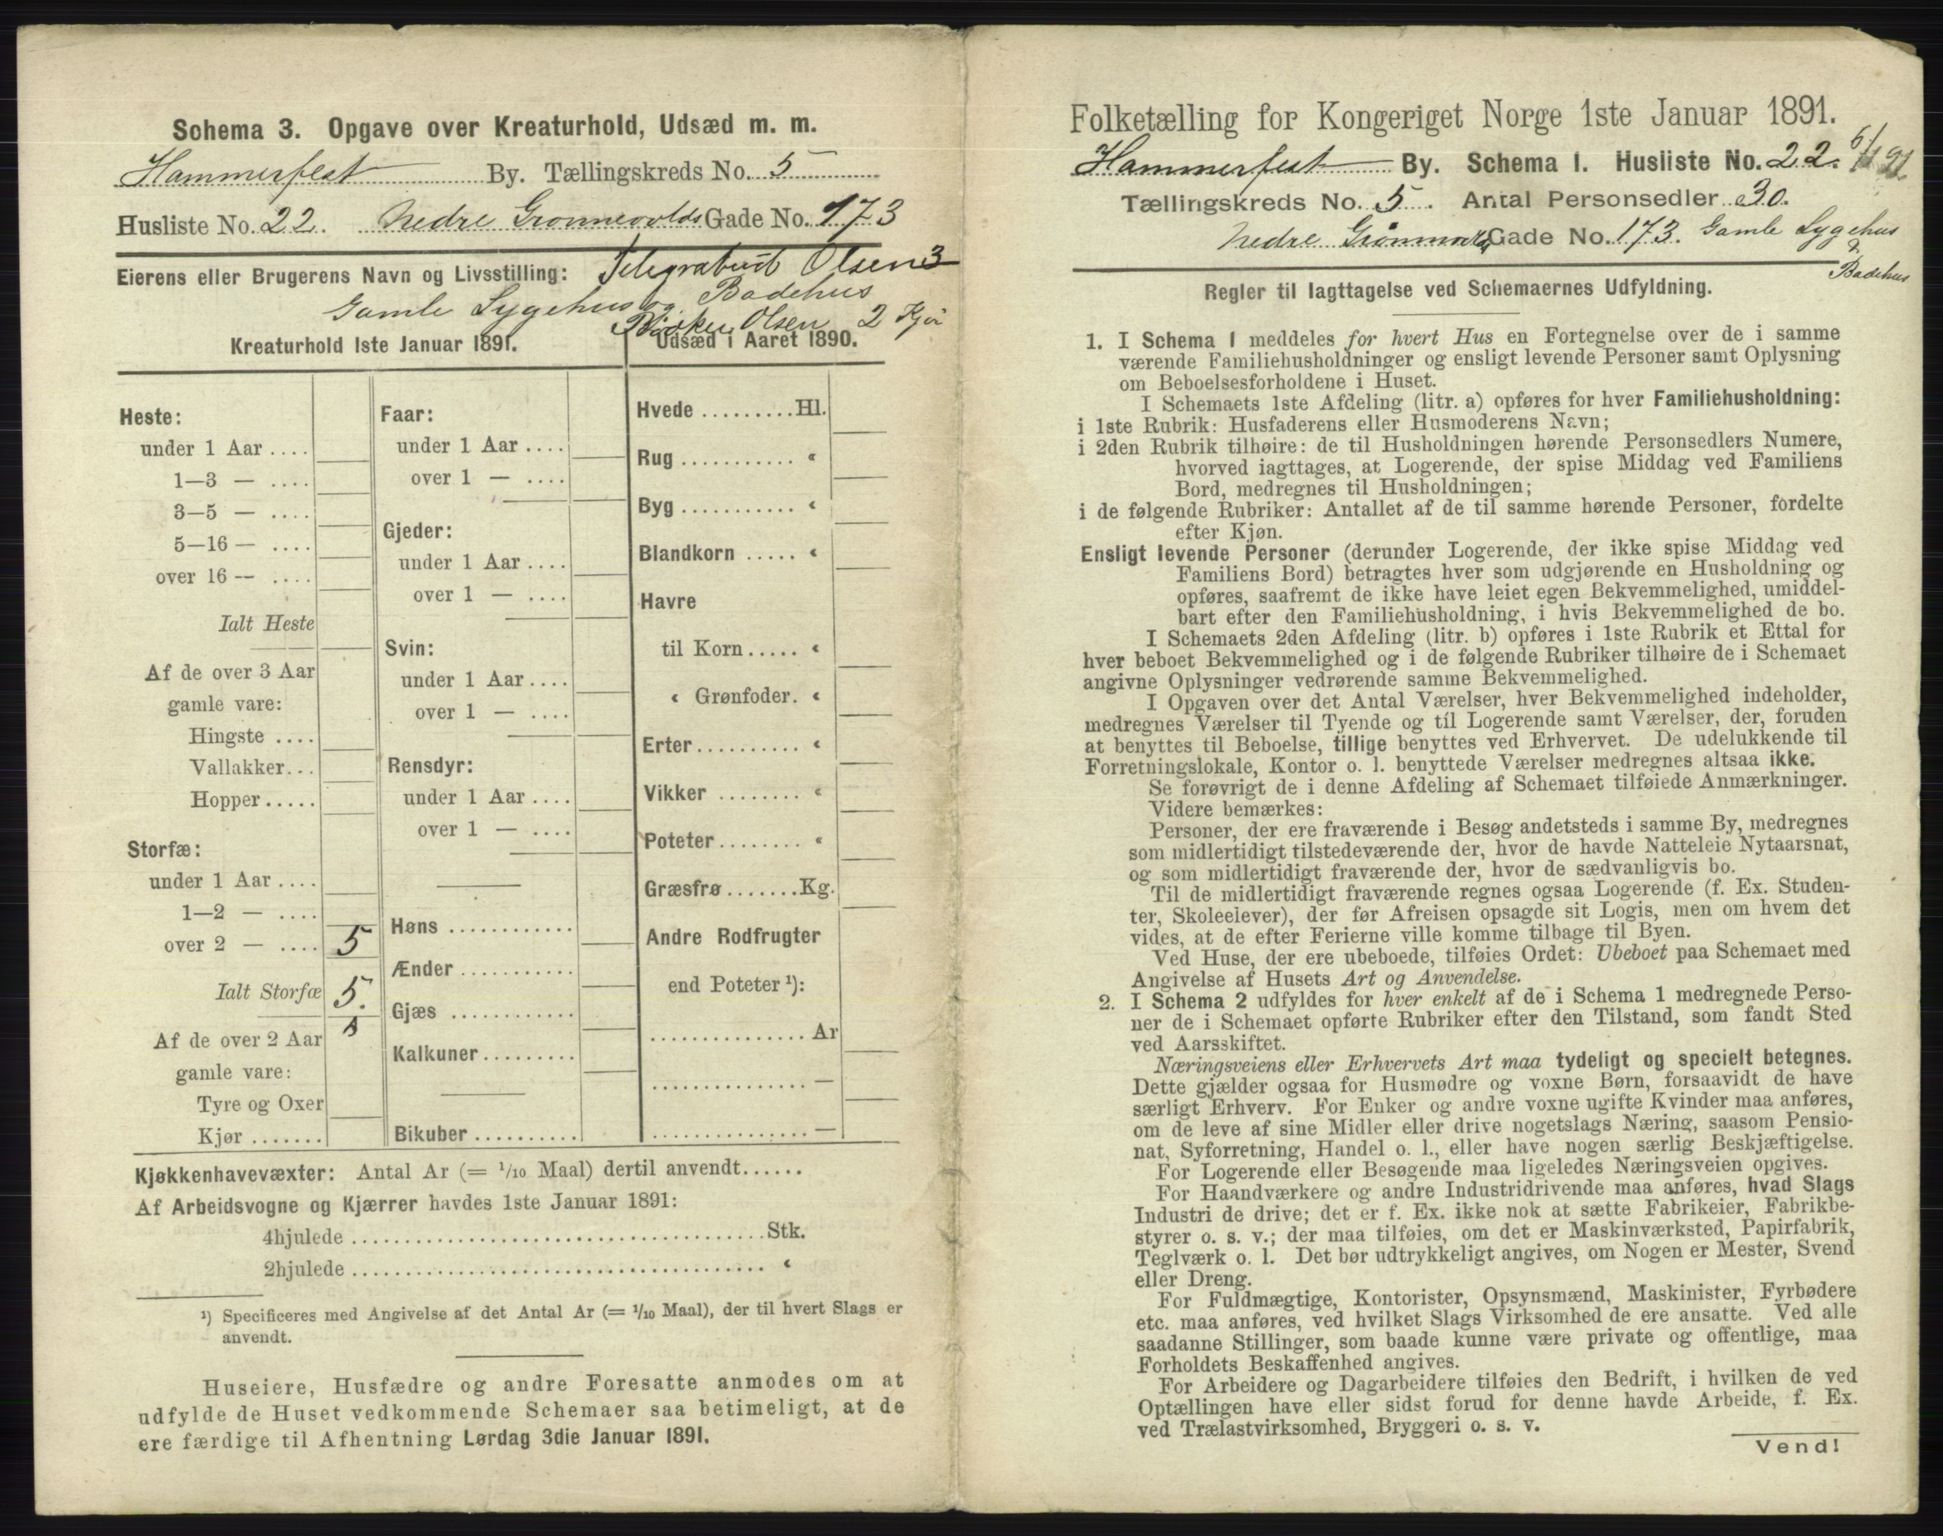 Schema 3. Opgave over Kreaturhold, Udsæd m. m.
Hammerfest By. Tællingskreds No. 5
Husliste No. 22. Nedre Gronnevolds Gade No. 173
Eierens eller Brugerens Navn og Livsstilling: Telegrafbud Olsen 3
Gamle Sygehus og Badehus
Olsen 2 Kjør
Kreaturhold 1ste Januar 1891.
Heste:
under 1 Aar ....
1—3 — ....
3—5 — ....
5—16 — ....
over 16 — ....
Ialt Heste
Af de over 3 Aar
gamle vare:
Hingste ....
Vallakker...
Hopper.....
Storfæ:
under 1 Aar ....
1—2 — ....
over 2 — .... 5
Ialt Storfæ 5.
Af de over 2 Aar
gamle vare:
Tyre og Oxer
Kjør .......
Faar:
under 1 Aar ....
over 1 — ....
Gjeder:
under 1 Aar ....
over 1 — ....
Svin:
under 1 Aar ....
over 1 — ....
Rensdyr:
under 1 Aar ....
over 1 — ....
Høns ...........
Ænder ..........
Gjæs ...........
Kalkuner.........
Bikuber ..........
Udsæd i Aaret 1890.
Hvede .........Hl.
Rug ........... "
Byg ........... "
Blandkorn ..... "
Havre
til Korn..... "
" Grønfoder. "
Erter.......... "
Vikker ........ "
Poteter........ "
Græsfrø.......Kg.
Andre Rodfrugter
end Poteter ¹):
............... Ar
............... —
............... —
Kjøkkenhavevæxter: Antal Ar (= 1/10 Maal) dertil anvendt......
Af Arbeidsvogne og Kjærrer havdes 1ste Januar 1891:
4hjulede ........................................Stk.
2hjulede ........................................ "
¹) Specificeres med Angivelse af det Antal Ar (= 1/10 Maal), der til hvert Slags er
anvendt.
Huseiere, Husfædre og andre Foresatte anmodes om at
udfylde de Huset vedkommende Schemaer saa betimeligt, at de
ere færdige til Afhentning Lørdag 3die Januar 1891.
Folketælling for Kongeriget Norge 1ste Januar 1891.
Hammerfest By. Schema I. Husliste No. 22. 6/1 91.
Tællingskreds No. 5. Antal Personsedler 30.
Nedre Grønnevolds Gade No. 173. Gamle Sygehus
& Badehus
Regler til Iagttagelse ved Schemaernes Udfyldning.
1. I Schema 1 meddeles for hvert Hus en Fortegnelse over de i samme
værende Familiehusholdninger og ensligt levende Personer samt Oplysning
om Beboelsesforholdene i Huset.
I Schemaets 1ste Afdeling (litr. a) opføres for hver Familiehusholdning:
i 1ste Rubrik: Husfaderens eller Husmoderens Navn;
i 2den Rubrik tilhøire: de til Husholdningen hørende Personsedlers Numere,
hvorved iagttages, at Logerende, der spise Middag ved Familiens
Bord, medregnes til Husholdningen;
i de følgende Rubriker: Antallet af de til samme hørende Personer, fordelte
efter Kjøn.
Ensligt levende Personer (derunder Logerende, der ikke spise Middag ved
Familiens Bord) betragtes hver som udgjørende en Husholdning og
opføres, saafremt de ikke have leiet egen Bekvemmelighed, umiddel-
bart efter den Familiehusholdning, i hvis Bekvemmelighed de bo.
I Schemaets 2den Afdeling (litr. b) opføres i 1ste Rubrik et Ettal for
hver beboet Bekvemmelighed og i de følgende Rubriker tilhøire de i Schemaet
angivne Oplysninger vedrørende samme Bekvemmelighed.
I Opgaven over det Antal Værelser, hver Bekvemmelighed indeholder,
medregnes Værelser til Tyende og til Logerende samt Værelser, der, foruden
at benyttes til Beboelse, tillige benyttes ved Erhvervet. De udelukkende til
Forretningslokale, Kontor o. l. benyttede Værelser medregnes altsaa ikke.
Se forøvrigt de i denne Afdeling af Schemaet tilføiede Anmærkninger.
Videre bemærkes:
Personer, der ere fraværende i Besøg andetsteds i samme By, medregnes
som midlertidigt tilstedeværende der, hvor de havde Natteleie Nytaarsnat,
og som midlertidigt fraværende der, hvor de sædvanligvis bo.
Til de midlertidigt fraværende regnes ogsaa Logerende (f. Ex. Studen-
ter, Skoleelever), der før Afreisen opsagde sit Logis, men om hvem det
vides, at de efter Ferierne ville komme tilbage til Byen.
Ved Huse, der ere ubeboede, tilføies Ordet: Ubeboet paa Schemaet med
Angivelse af Husets Art og Anvendelse.
2. I Schema 2 udfyldes for hver enkelt af de i Schema 1 medregnede Perso-
ner de i Schemaet opførte Rubriker efter den Tilstand, som fandt Sted
ved Aarsskiftet.
Næringsveiens eller Erhvervets Art maa tydeligt og specielt betegnes.
Dette gjælder ogsaa for Husmødre og voxne Børn, forsaavidt de have
særligt Erhverv. For Enker og andre voxne ugifte Kvinder maa anføres,
om de leve af sine Midler eller drive nogetslags Næring, saasom Pensio-
nat, Syforretning, Handel o. l., eller have nogen særlig Beskjæftigelse.
For Logerende eller Besøgende maa ligeledes Næringsveien opgives.
For Haandværkere og andre Industridrivende maa anføres, hvad Slags
Industri de drive; det er f. Ex. ikke nok at sætte Fabrikeier, Fabrikbe-
styrer o. s. v.; der maa tilføies, om det er Maskinværksted, Papirfabrik,
Teglværk o. l. Det bør udtrykkeligt angives, om Nogen er Mester, Svend
eller Dreng.
For Fuldmægtige, Kontorister, Opsynsmænd, Maskinister, Fyrbødere
etc. maa anføres, ved hvilket Slags Virksomhed de ere ansatte. Ved alle
saadanne Stillinger, som baade kunne være private og offentlige, maa
Forholdets Beskaffenhed angives.
For Arbeidere og Dagarbeidere tilføies den Bedrift, i hvilken de ved
Optællingen have eller sidst forud for denne havde Arbeide, f. Ex.
ved Trælastvirksomhed, Bryggeri o. s. v.
Vend!